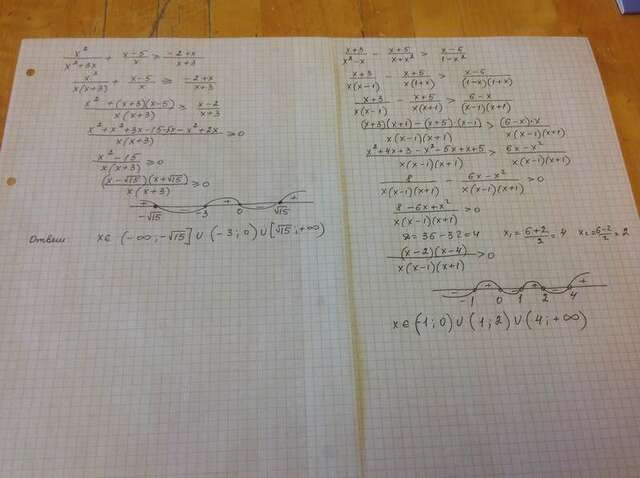 x²/(x²+3x) + (x-5)/x > (-2+x)/(x+3)
x²/(x(x+3)) + (x-5)/x ≥ (-2+x)/(x+3)
(x² + (x+3)(x-5))/(x(x+3)) ≥ (x-2)/(x+3)
(x² + x² + 3x - 15 - 5x - x² + 2x)/(x(x+3)) ≥ 0
(x² - 15)/(x(x+3)) ≥ 0
((x - √15)(x + √15))/(x(x+3)) ≥ 0
+ - + - +
-√15 -3 0 √15
Ответ: x ∈ (-∞; -√15] ∪ (-3; 0) ∪ [√15; +∞)
(x+3)/(x²-x) - (x+5)/(x+x²) > (x-6)/(1-x²)
(x+3)/(x(x-1)) - (x+5)/(x(1+x)) > (x-6)/((1-x)(1+x))
(x+3)/(x(x-1)) - (x+5)/(x(x+1)) > (6-x)/((x-1)(x+1))
((x+3)(x+1) - (x+5)·(x-1))/(x(x-1)(x+1)) > ((6-x)·x)/(x(x-1)(x+1))
(x²+4x+3-x²-5x+x+5)/(x(x-1)(x+1)) > (6x-x²)/(x(x-1)(x+1))
8/(x(x-1)(x+1)) - (6x-x²)/(x(x-1)(x+1)) > 0
(8-6x+x²)/(x(x-1)(x+1)) > 0
D=36-32=4 x₁=(6+2)/2=4 x₂=(6-2)/2=2
((x-2)(x-4))/(x(x-1)(x+1)) > 0
- + - + - +
-1 0 1 2 4
x ∈ (-1; 0) ∪ (1; 2) ∪ (4; +∞)